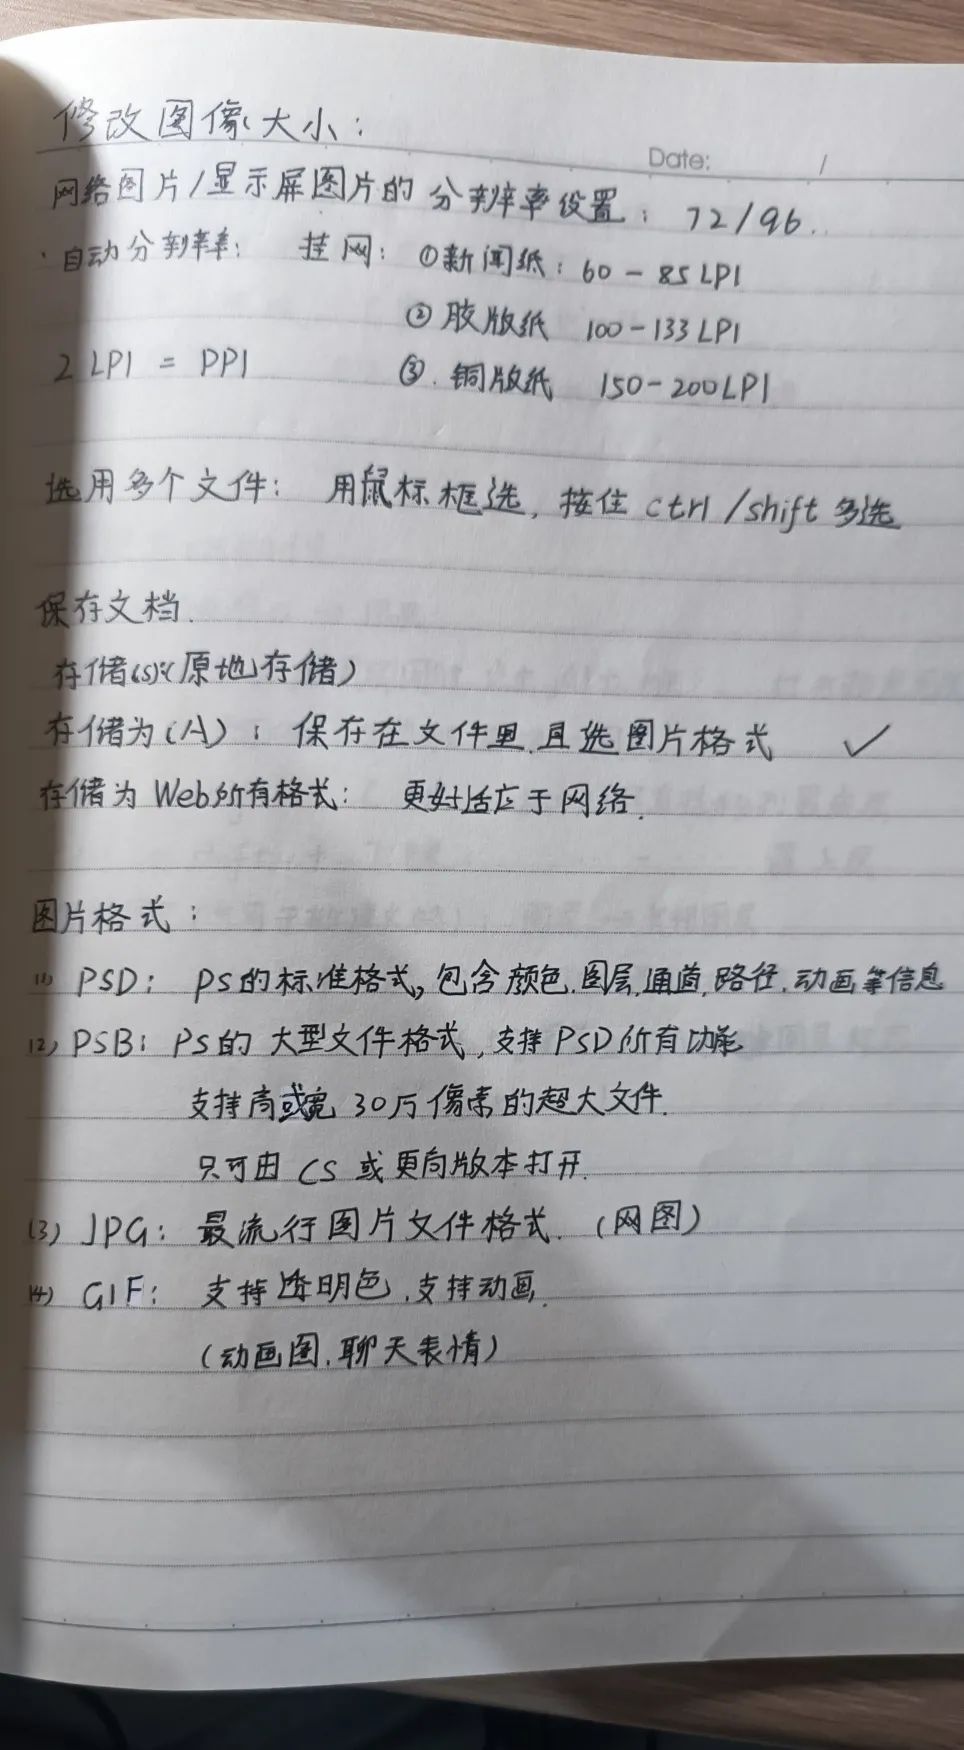 修改图像大小:
Date: /
网络图片/显示屏图片的分辨率设置: 72/96.
·自动分辨率: 挂网: ①新闻纸: 60-85LPI
②胶版纸 100-133LPI
2LPI = PPI ③.铜版纸 150-200LPI
选用多个文件: 用鼠标框选, 按住 ctrl/shift 多选
保存文档.
存储(S):(原地存储)
存储为(A): 保存在文件里.且选图片格式 ✓
存储为Web所有格式: 更好适应于网络.
图片格式:
(1) PSD: PS的标准格式,包含颜色.图层.通道.路径.动画等信息
(2) PSB: PS的大型文件格式,支持PSD所有功能
支持高或宽30万像素的超大文件.
只可由CS或更高版本打开.
(3) JPG: 最流行图片文件格式. (网图)
(4) GIF: 支持透明色.支持动画.
(动画图.聊天表情)